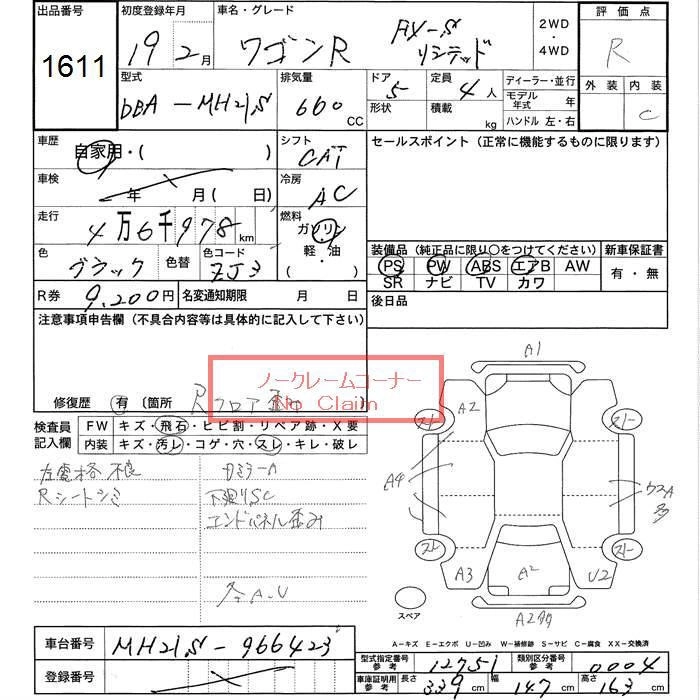 出品番号 初度登録年月 車名・グレード 2WD・4WD 評価点
1611 19 2月 ワゴンR FX-S リミテッド R
型式 排気量 ドア 形状 定員 積載 ディーラー・並行 外装 内装
DBA-MH21S 660 CC 5 4人 kg モデル年式 年 ハンドル 左・右 C
車歴 自家用・( ) シフト CAT セールスポイント (正常に機能するものに限ります)
車検 年 月(日) 冷房 AC
走行 4万6千978km 燃料 ガソリン・軽・油
装備品 (純正品に限り○をつけてください) 新車保証書
色 ブラック 色替 色コード ZJ3
PS PW ABS エアB AW 有・無
SR ナビ TV カワ
R券 9,200円 名変通知期限 月 日 後日品
注意事項申告欄 (不具合内容等は具体的に記入して下さい)
ノークレームコーナー
No Claim
修復歴 有 〔箇所 Rフロア
検査員記入欄 FW キズ・飛石・ヒビ割・リペア跡・X要
内装 キズ・汚レ・コゲ・穴・スレ・キレ・破レ
不良
Rシートシミ
下廻りSC
エンドパネル歪み
A1
A2
A4
A3
A2
U2
スペア
A-キズ E-エクボ U-凹み W-補修跡 S-サビ C-腐食 XX-交換済
車台番号 MH21S-966423
登録番号
型式指定番号 参考 12751 類別区分番号 参考 0004
車庫証明用 参考 長さ 339 cm 幅 147 cm 高さ 163 cm